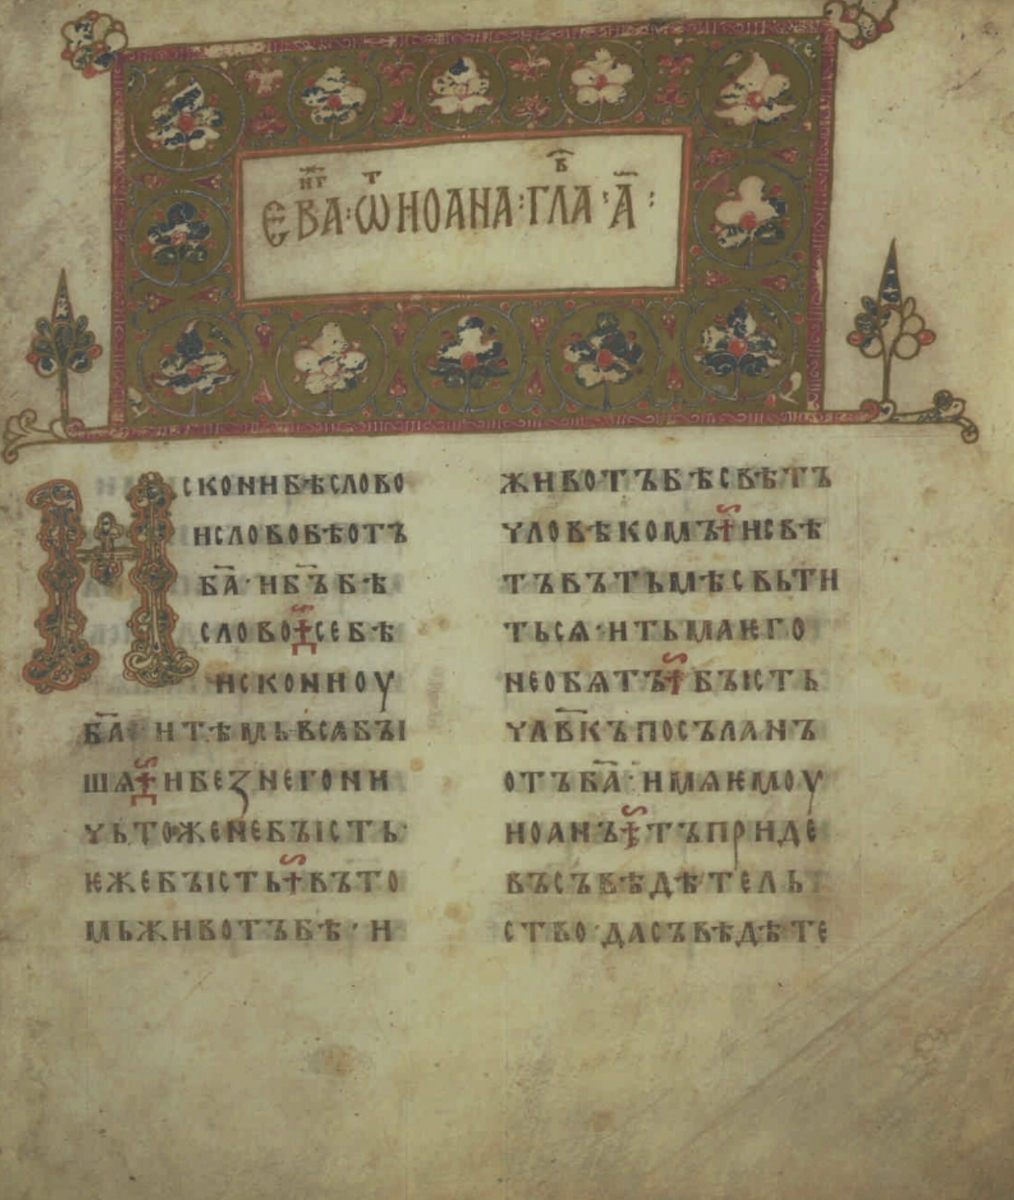 ЕВА҃НГ : Ѿ ИОАНА : ГЛАВ : А҃ :
ИСКОНИБѢСЛОВО
ИСЛОВОБѢОТЪ
БА҃ · ИБЪ҃БѢ
СЛОВО СЕБѢ
ИСКОНИОУ
БА҃ · ИТѢМЬВСѦБЪІ
ШѦ ИБЕꙁНЕГОНИ
ЧЬТОЖЕНЕБЪІСТЬ·
ѤЖЕБЪІСТЬ ВЪТО
МЬЖИВОТЪБѢ · И
ЖИВОТЪБѢСВѢТЪ
ЧЛОВѢКОМЪ ИСВѢ
ТЪВЪТЬМѢСВЬТИ
ТЬСѦ · ИТЬМАѤГО
НЕОБѦТЪ БЪІСТЬ
ЧЛВ҃КЪПОСЪЛАНЪ
ОТЪБА҃ · ИМѦѤМОУ
ИОАНЪ ТЪПРИДЕ
ВЪСЪВѢДѢТЕЛЬ
СТВО · ДАСЪВѢДѢТЕ